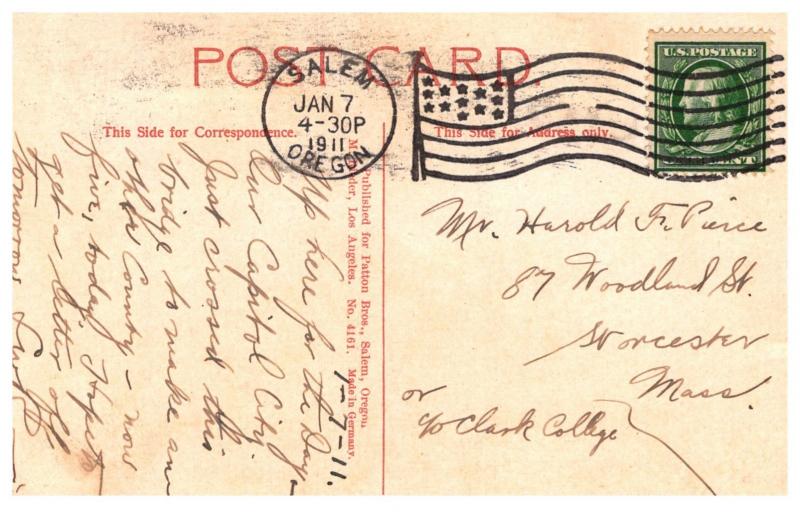 POST CARD.
SALEM
JAN 7
4-30P
1911
OREGON
U.S. POSTAGE
This Side for Correspondence.
This Side for Address only.
1-7-11.
Up here for the Day -
Our Capitol City.
Just crossed this
bridge to make an
other County - now
five, today. Hope to
get a letter of
tomorrow
Published for Patton Bros., Salem, Oregon.
M. Rieder, Los Angeles. No. 4161. Made in Germany.
Mr. Harold F. Pierce
87 Woodland St.
Worcester
Mass.
or
c/o Clark College